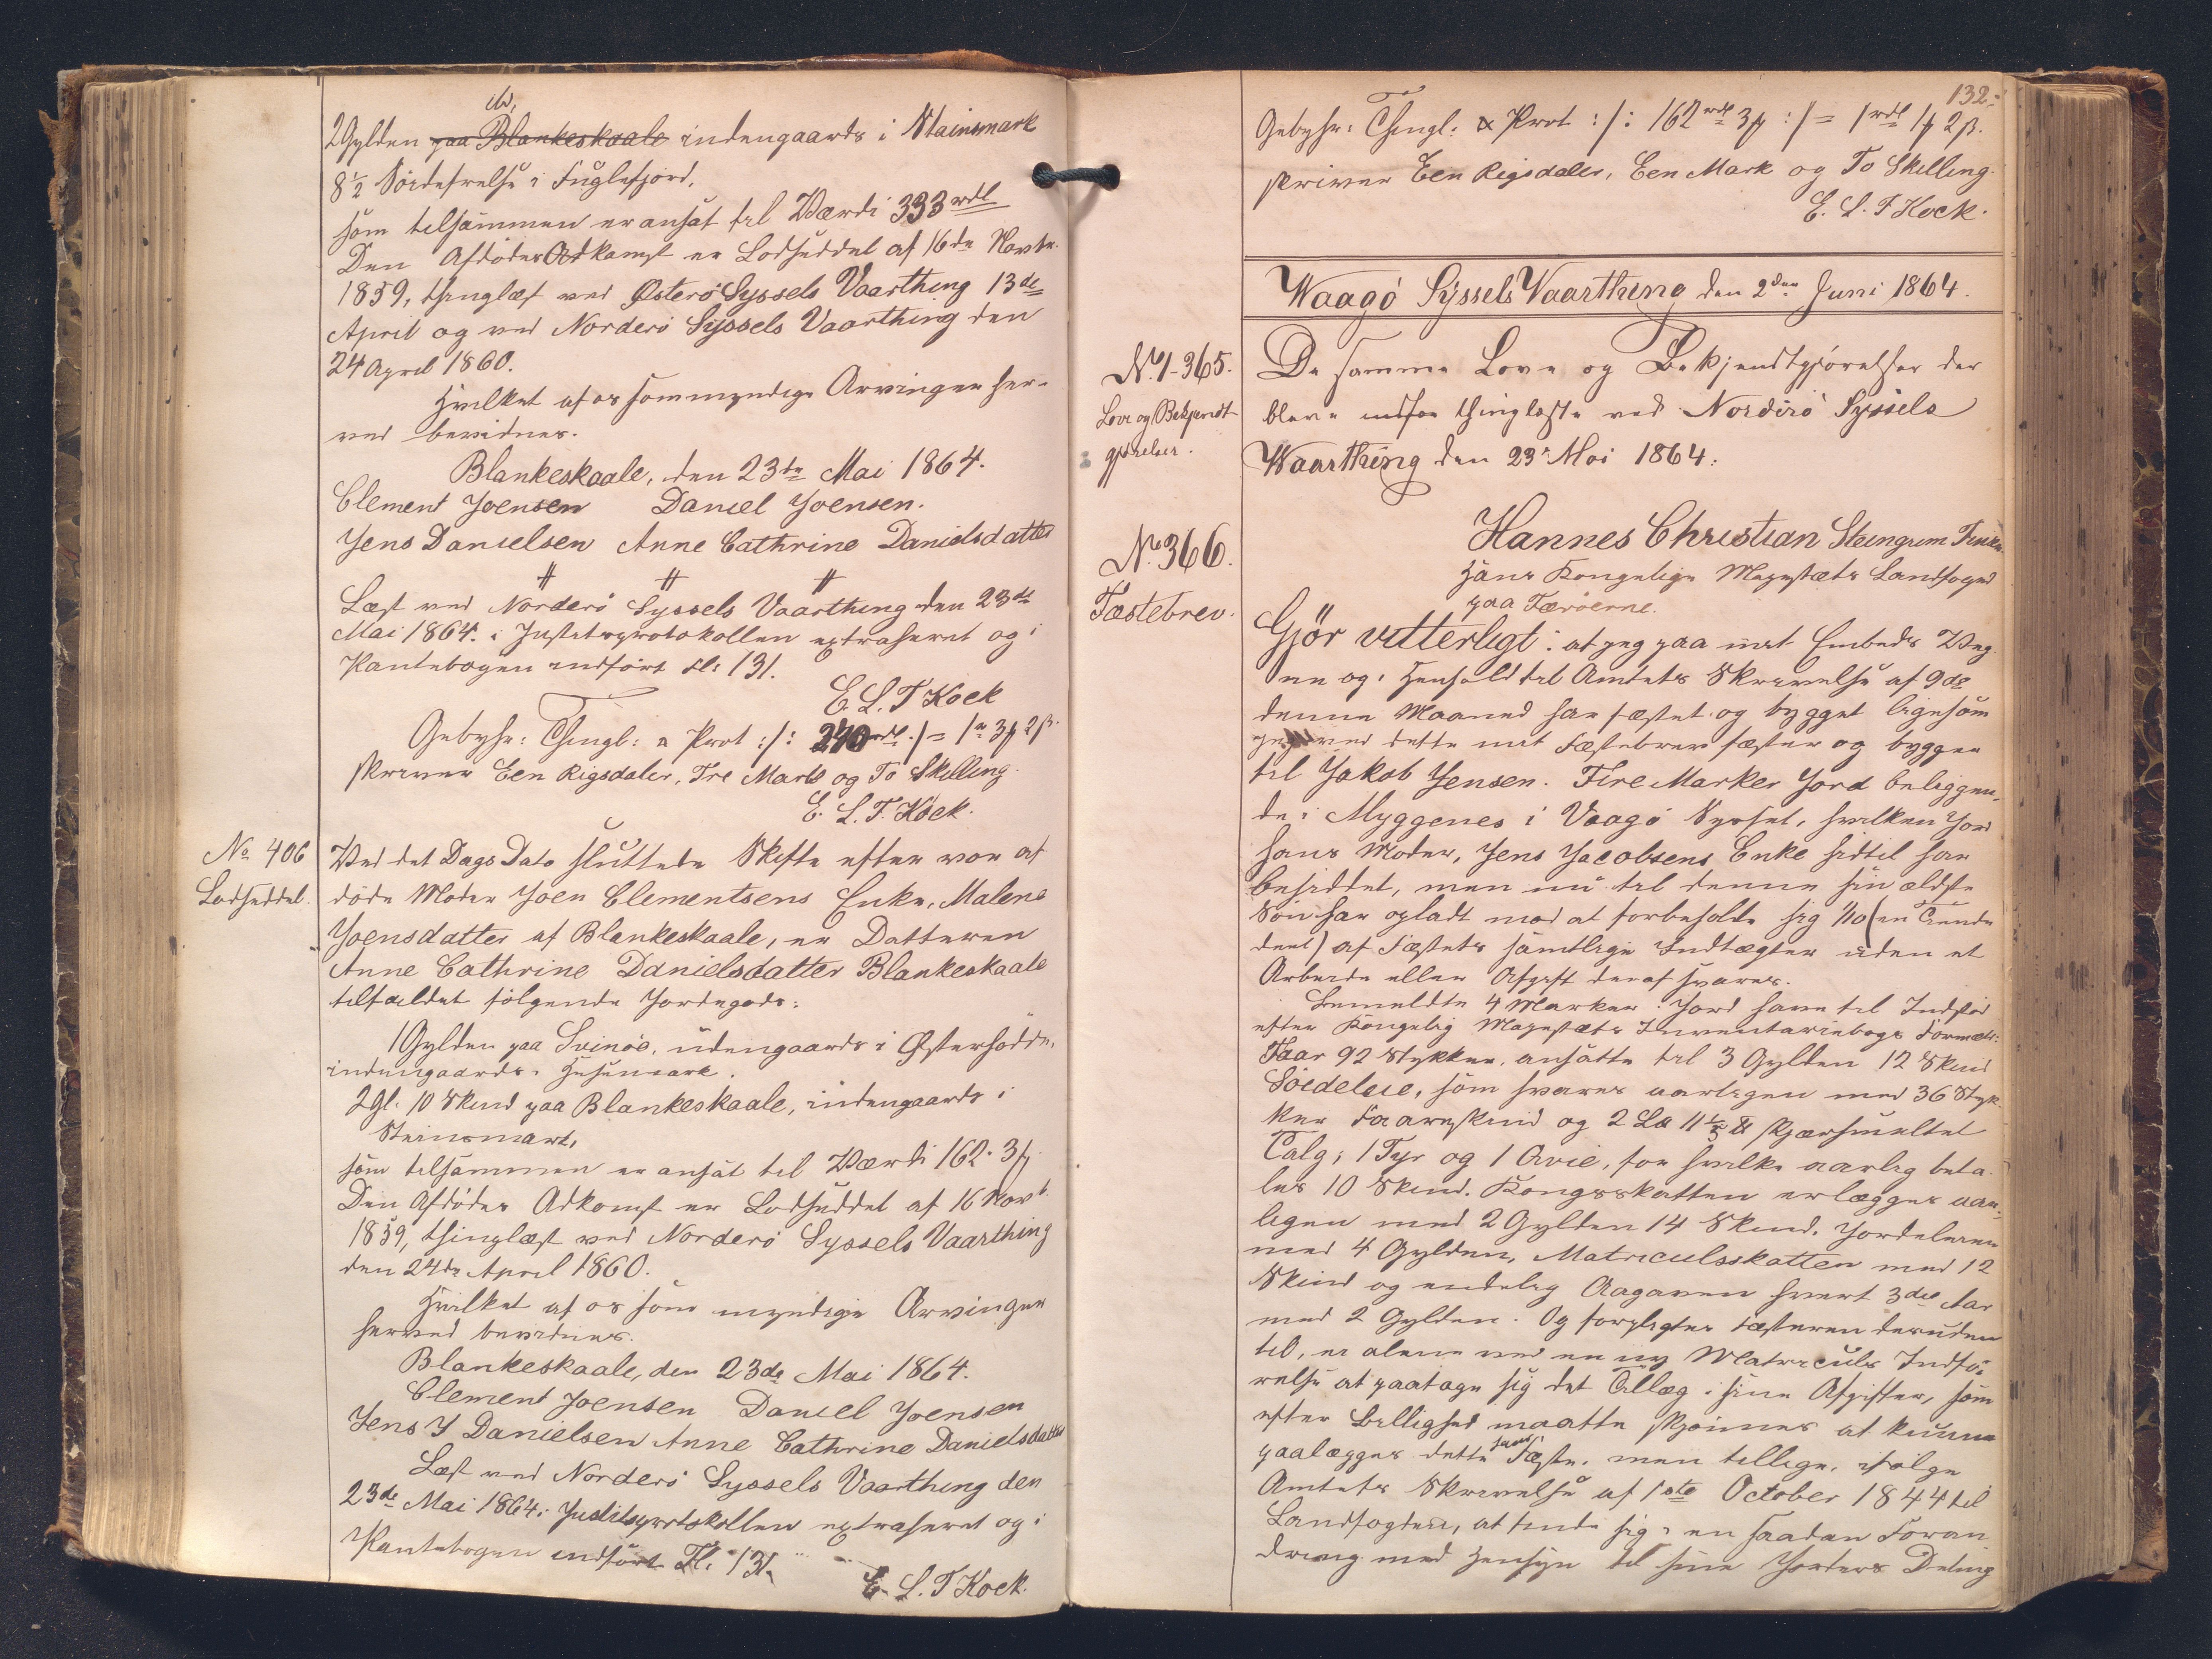 ib,
2 Gylden paa Blankeskaale indengaards i Stainsmark
8½ Födestrælse i Fuglefjord,
som tilsammen er ansat til Værdi 333 rdl
Den Afdødes Adkomst er Lodseddel af 16de Novbr.
1859, thinglæst ved Østerö Syssels Vaarthing 13de
April og ved Norderö Syssels Vaarthing den
24 April 1860.
Hvilket af os som myndige Arvinger her-
ved bevidnes.
Blankeskaale, den 23de Mai 1864.
Clement Joensen Daniel Joensen.
Jens Danielsen Anne Cathrine Danielsdatter
Læst ved Norderö Syssels Vaarthing den 23de
Mai 1864. i Justitsprotokollen extraheret og i
Pantebogen indført Fl: 131.
E. L. T Kock
Gebyhr: Thingl: & Prot :/: 240 rdl :/ = 1 rd 3 ℳ 2 ß.
skriver Een Rigsdaler, Tre Mark og To Skilling.
E. L. T. Kock.
No 406
Lodseddel.
Ved det Dags Dato sluttede Skifte efter vor af
döde Moder Joen Clementsens Enke, Malene
Joensdatter af Blankeskaale, er Datteren
Anne Cathrine Danielsdatter Blankeskaale
tilfaldet følgende Jordegods:
1 Gylden paa Svinöe, udengaards i
indengaards i Husemark.
2 Gl. 10 Skind paa Blankeskaale, indengaards i
Steinsmark,
som tilsammen er ansat til Værdi 162. 3 ℳ
Den Afdødes Adkomst er Lodseddel af 16 Novb.
1859, thinglæst ved Norderö Syssels Vaarthing
den 24de April 1860.
Hvilket af os som myndige Arvinger
herved bevidnes.
Blankeskaale, den 23de Mai 1864.
Clement Joensen Daniel Joensen
Jens J Danielsen Anne Cathrine Danielsdatter
Læst ved Norderö Syssels Vaarthing den
23de Mai 1864. i Justitsprotokollen extraheret og i
Pantebogen indført Fl. 131.
E. L. T Kock.
132.
Gebyhr: Thingl: & Prot :/: 162 rdl 3 ℳ :/ = 1 rdl 1 ℳ 2 ß.
skriver Een Rigsdaler, Een Mark og To Skilling.
E. L. T Kock.
Waagö Syssels Vaarthing den 2den Juni 1864.
No. 1-365.
Love og Bekjendt
gjörelser.
De samme Love og Bekjendtgjörelser der
bleve thinglæste ved Norderö Syssels
Waarthing den 23 Mai 1864.
No. 366.
Fæstebrev.
Hannes Christian Steingrim Finsen
Hans Kongelige Majestæts Landfoged
paa Færöerne.
Gjör vitterligt: at jeg paa mit Embeds Veg-
ne og i Henhold til Amtets Skrivelse af 9de
denne Maaned har fæstet og bygget ligesom
jeg ved dette mit Fæstebrev fæster og bygger
til Jakob Jensen. Fire Marker Jord beliggen-
de i Myggenes i Vaagö Syssel, hvilken Jord
hans Moder, Jens Jacobsens Enke hidtil har
besiddet, men nu til denne sin ældste
Sön har opladt mod at forbeholde sig 1/10 (en Tiende
deel) af Fæstets samtlige Indtægter uden at
Arbeide eller Afgift deraf svares.
Bemeldte 4 Marker Jord have til Indsted
efter Kongelig Majestæts Inventariebogs Formeld:
Faar 92 Stykker, ansatte til 3 Gylden 12 Skind
Söedeleie, som svares aarligen med 36 Styk-
ker Faareskind og 2 L℔ 11⅓ ℔ skjærsmeltet
Talg; 1 Tyr og 1 Qvie, for hvilke aarlig beta-
les 10 Skind. Kongsskatten erlægges aar-
ligen med 2 Gylden 14 Skind, Jordeleien
med 4 Gylden, Matriculsskatten med 12
Skind og endelig Aagaven hvert 3die Aar
med 2 Gylden. Og forpligtes Fæsteren desuden
til, ei alene ved en ny Matriculs Indfö-
relse at paatage sig det Tillæg i sine Afgifter, som
efter Billighed maatte skjönnes at kunne
paalægges dette hans Fæste, men tillige, ifölge
Amtets Skrivelse af 1ste October 1844 til
Landfogden, at finde sig i en saadan Foran-
dring med Hensyn til sine Jorders Deling